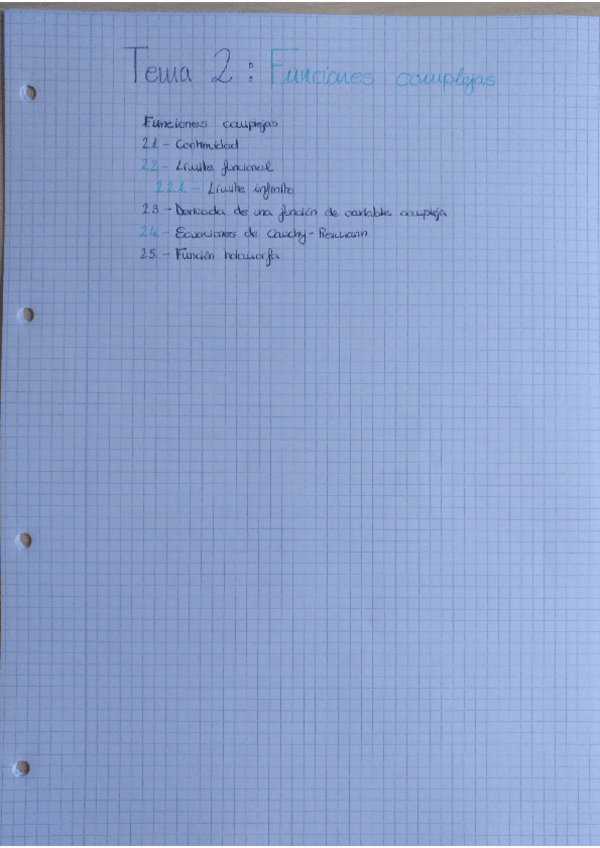 Tema 2: Funciones complejas
Funciones complejas
2.1.- Continuidad
2.2.- Límite funcional
2.2.1.- Límite infinito
2.3.- Derivada de una función de variable compleja
2.4.- Ecuaciones de Cauchy-Riemann
2.5.- Función holomorfa